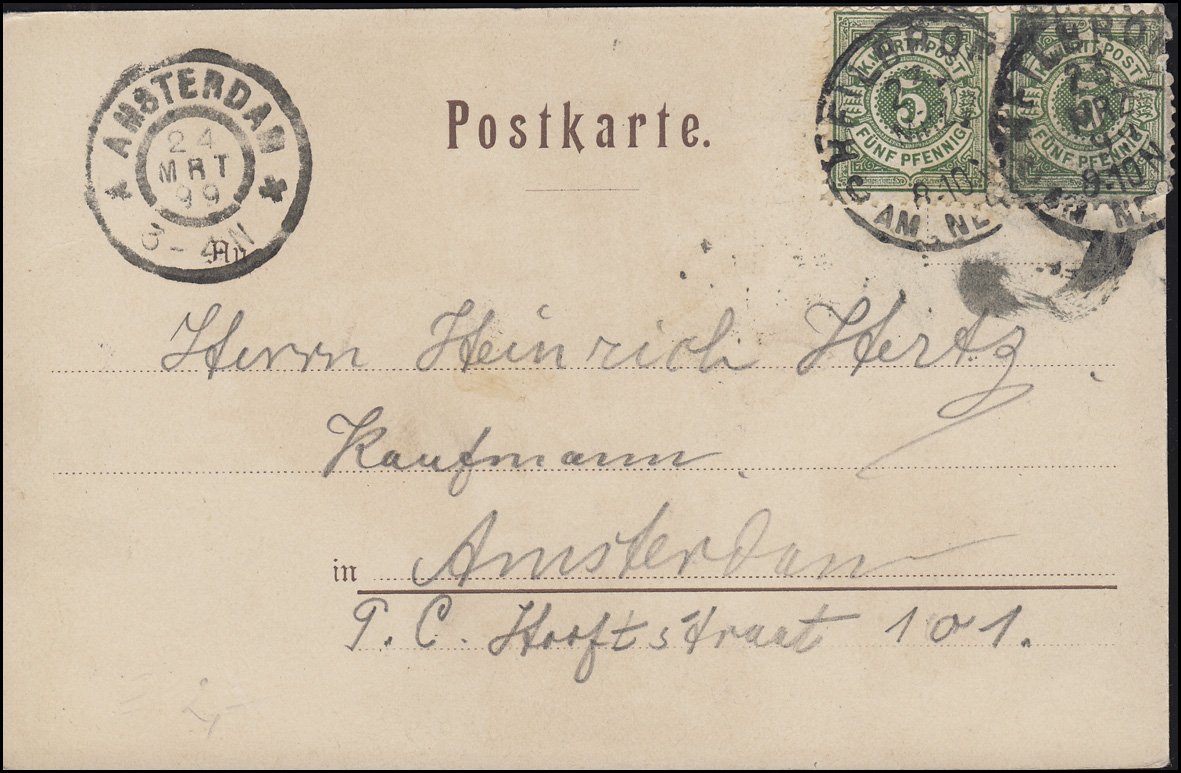 AMSTERDAM
24
MRT
99
3-4N
Postkarte.
K. WÜRTT. POST
5
FÜNF PFENNIG
K. WÜRTT. POST
5
FÜNF PFENNIG
HEILBRON
8-10N
AM NE
HEILBRON
MRZ
8-10N
AM NE
An
Herrn Heinrich Hertz
Kaufmann
in Amsterdam
P. C. Hooftstraat 101.